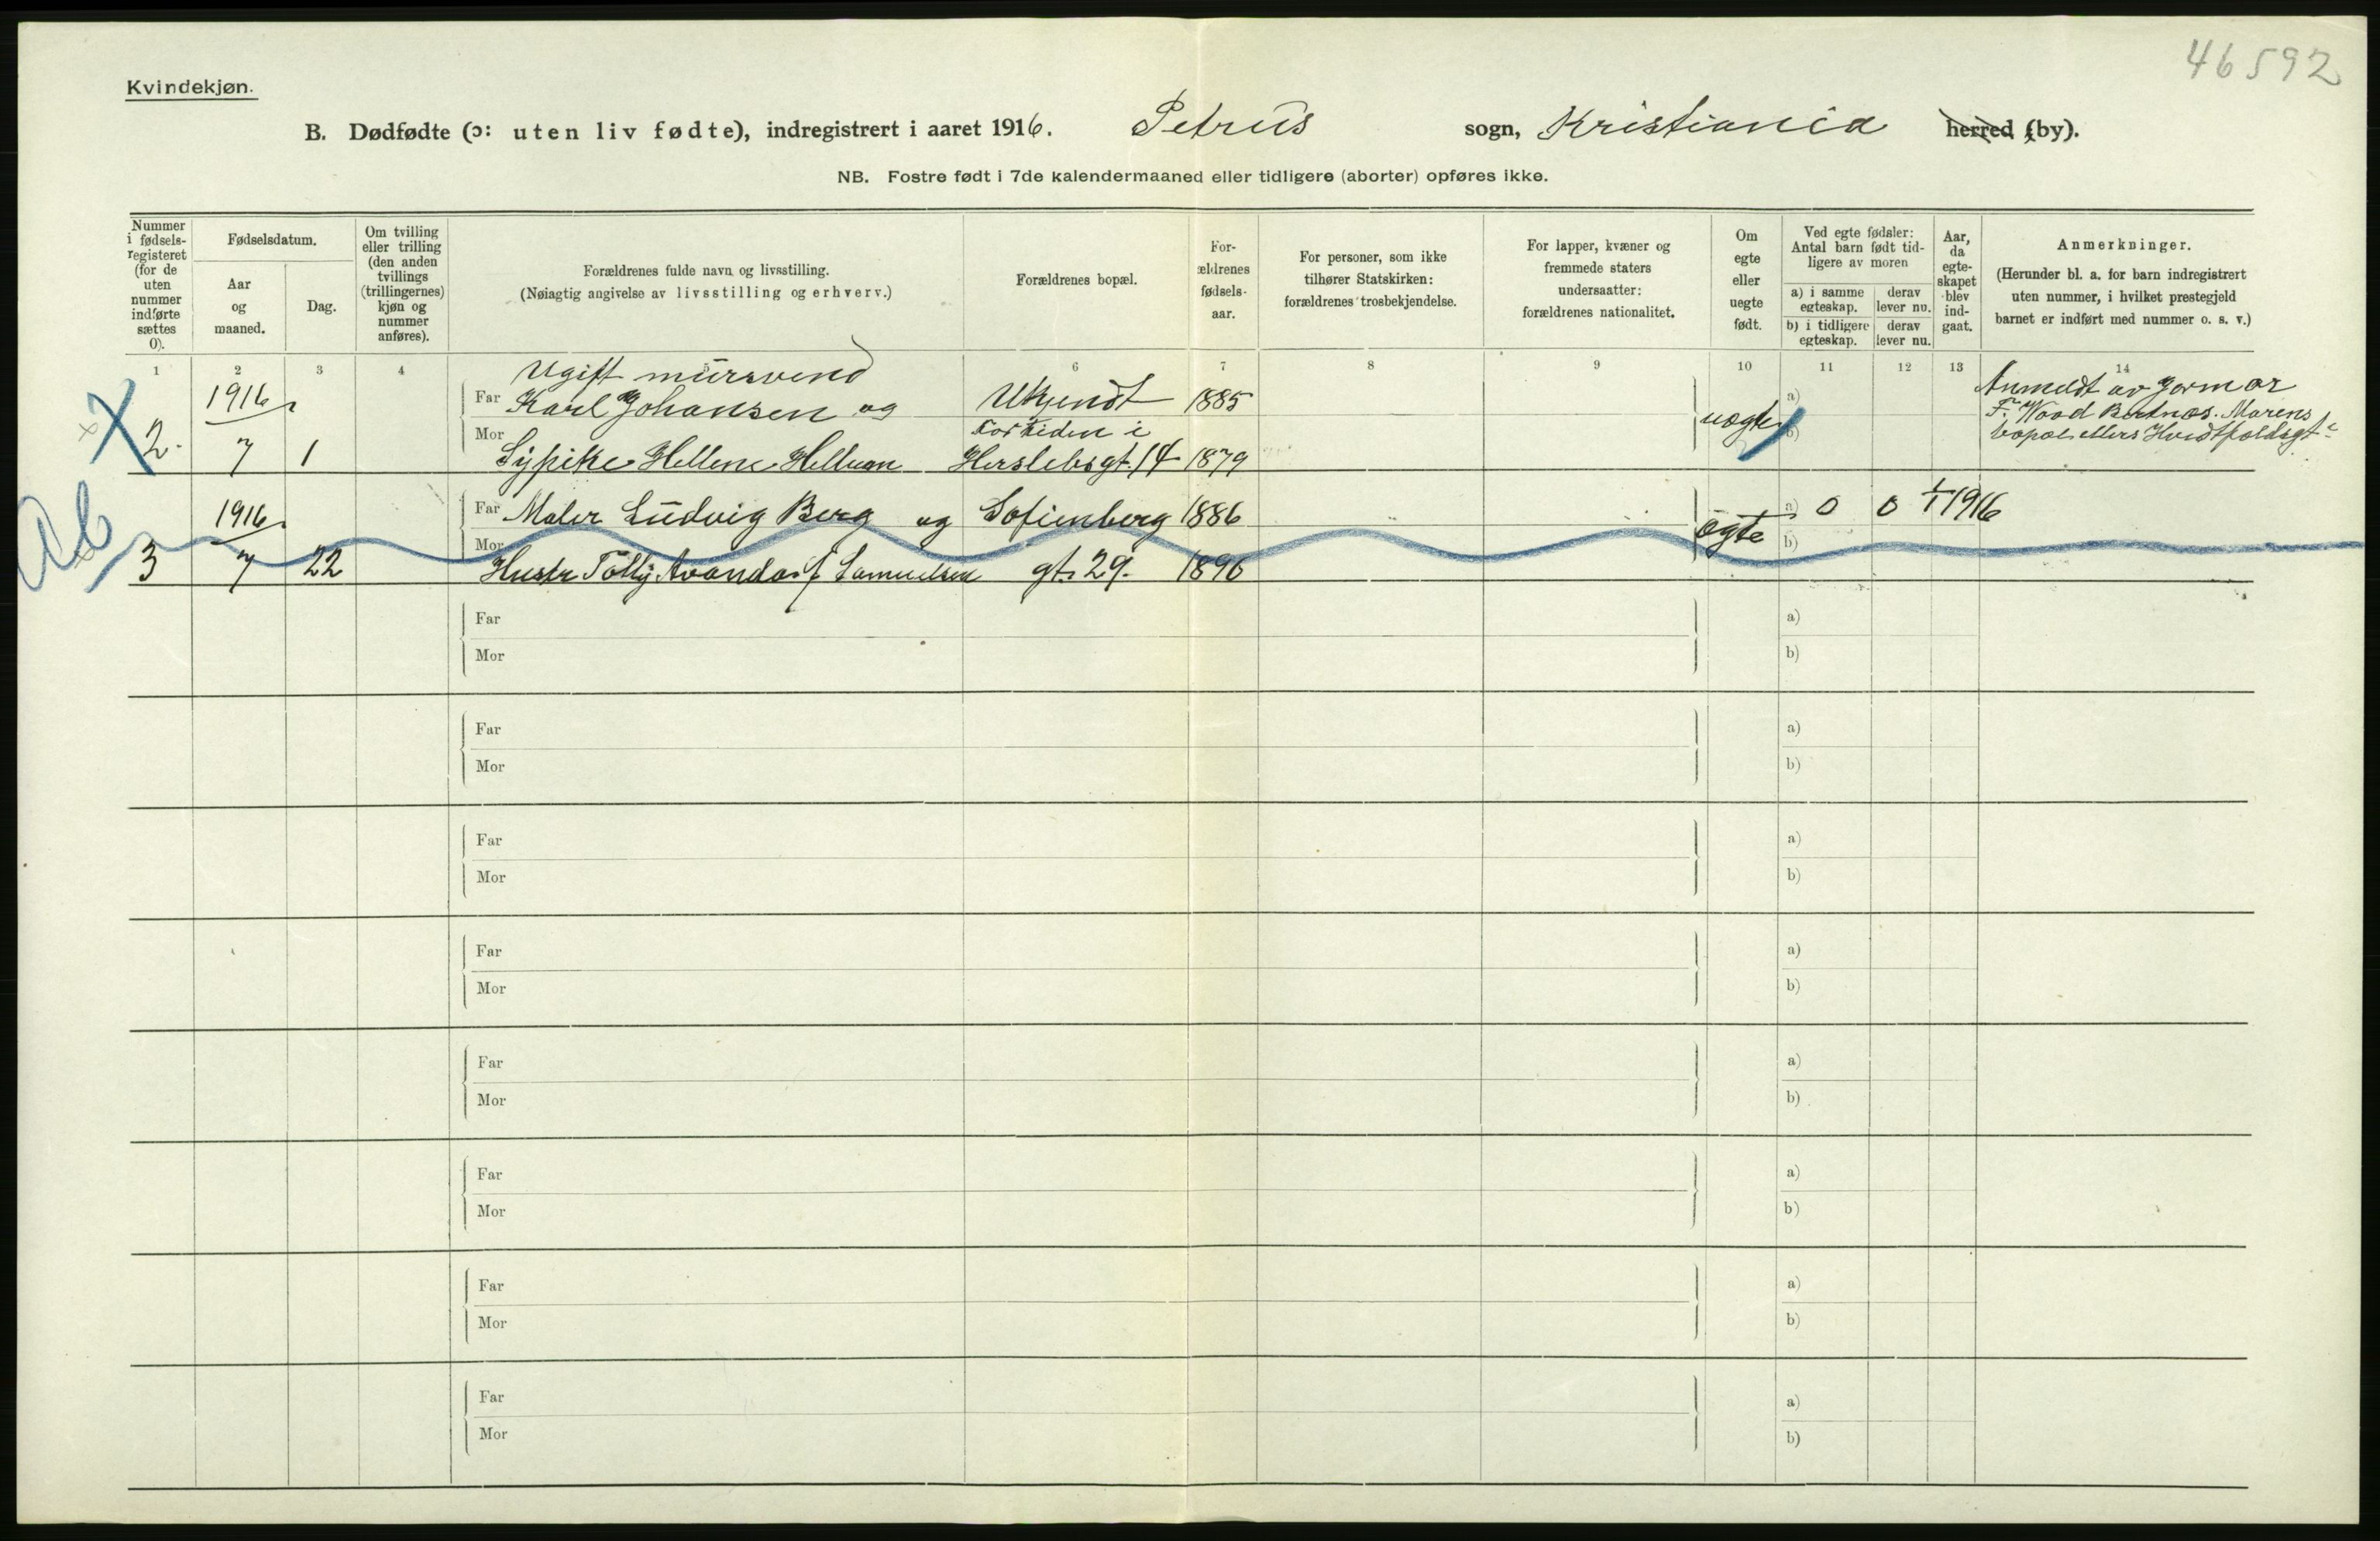 46592
Kvindekjøn.
B. Dødfødte (ɔ: uten liv fødte), indregistrert i aaret 1916. Petrus sogn, Kristiania herred (by).
NB. Fostre født i 7de kalendermaaned eller tidligere (aborter) opføres ikke.
Nummer
i fødsels-
registeret
(for de
uten
nummer
indførte
sættes
0).
Fødselsdatum.
Aar
og
maaned.
Dag.
Om tvilling
eller trilling
(den anden
tvillings
(trillingernes)
kjøn og
nummer
anføres).
Forældrenes fulde navn og livsstilling.
(Nøiagtig angivelse av livsstilling og erhverv.)
Forældrenes bopæl.
For-
ældrenes
fødsels-
aar.
For personer, som ikke
tilhører Statskirken:
forældrenes trosbekjendelse.
For lapper, kvæner og
fremmede staters
undersaatter:
forældrenes nationalitet.
Om
egte
eller
uegte
født.
Ved egte fødsler:
Antal barn født tid-
ligere av moren
a) i samme
egteskap.
derav
lever nu.
b) i tidligere
egteskap.
derav
lever nu.
Aar,
da
egte-
skapet
blev
ind-
gaat.
Anmerkninger.
(Herunder bl. a. for barn indregistrert
uten nummer, i hvilket prestegjeld
barnet er indført med nummer o. s. v.)
1 2 3 4 6 7 8 9 10 11 12 13 14
Ugift mursvend
1916 Far Karl Johansen og Ukjendt 1885 uegte a) Anmeldt av Jormor
F. Wood Morens
Mor for tiden i b) bopæl ellers
2. 7 1 Sypike Hellene Herslebsgt. 14 1879
Ab
1916. Far Maler Ludvig Berg og Sofienberg 1886 ægte a) 0 0 1/1 1916
Mor b)
3 7 22 Hustr Samuelsen gt. 29. 1896
Far a)
Mor b)
Far a)
Mor b)
Far a)
Mor b)
Far a)
Mor b)
Far a)
Mor b)
Far a)
Mor b)
Far a)
Mor b)
Far a)
Mor b)